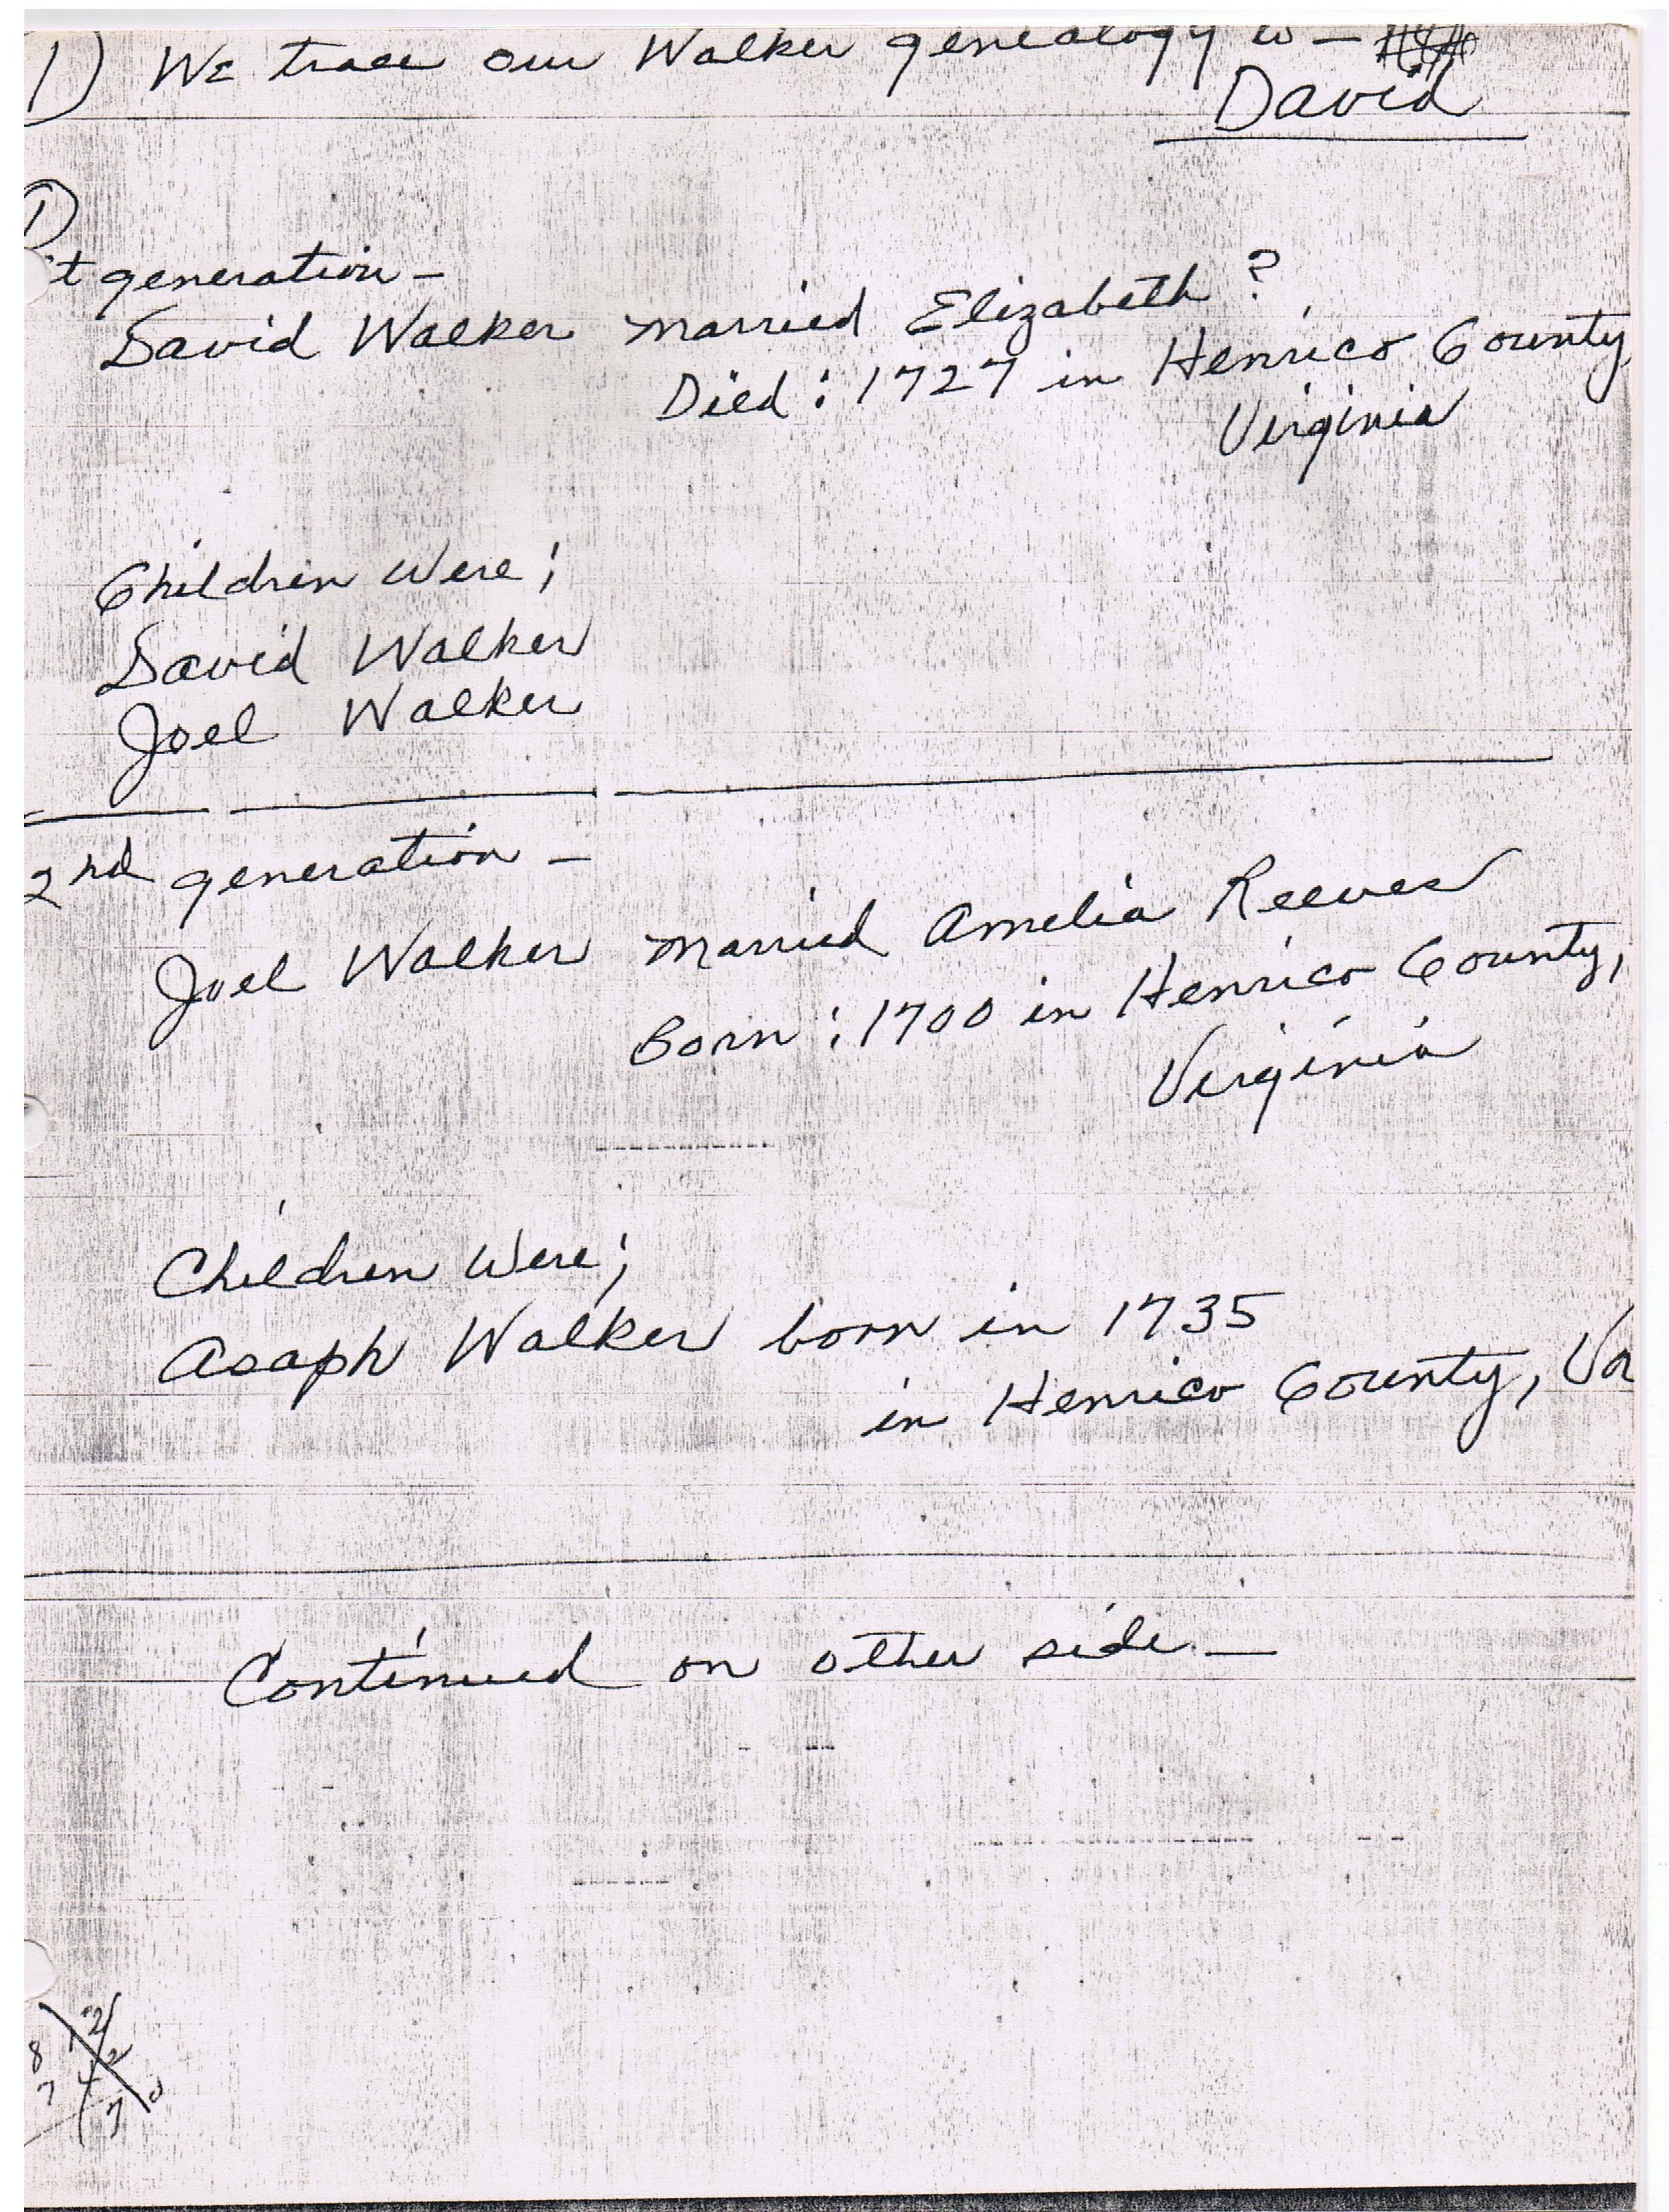 1) We trace our Walker genealogy to —
David
1
't generation —
David Walker married Elizabeth ?
Died : 1727 in Henrico County
Virginia
Children Were ;
David Walker
Joel Walker
2nd generation —
Joel Walker married Amelia Reeves
Born : 1700 in Henrico County,
Virginia
Children Were ;
Asaph Walker born in 1735
in Henrico County, Va
Continued on other side —